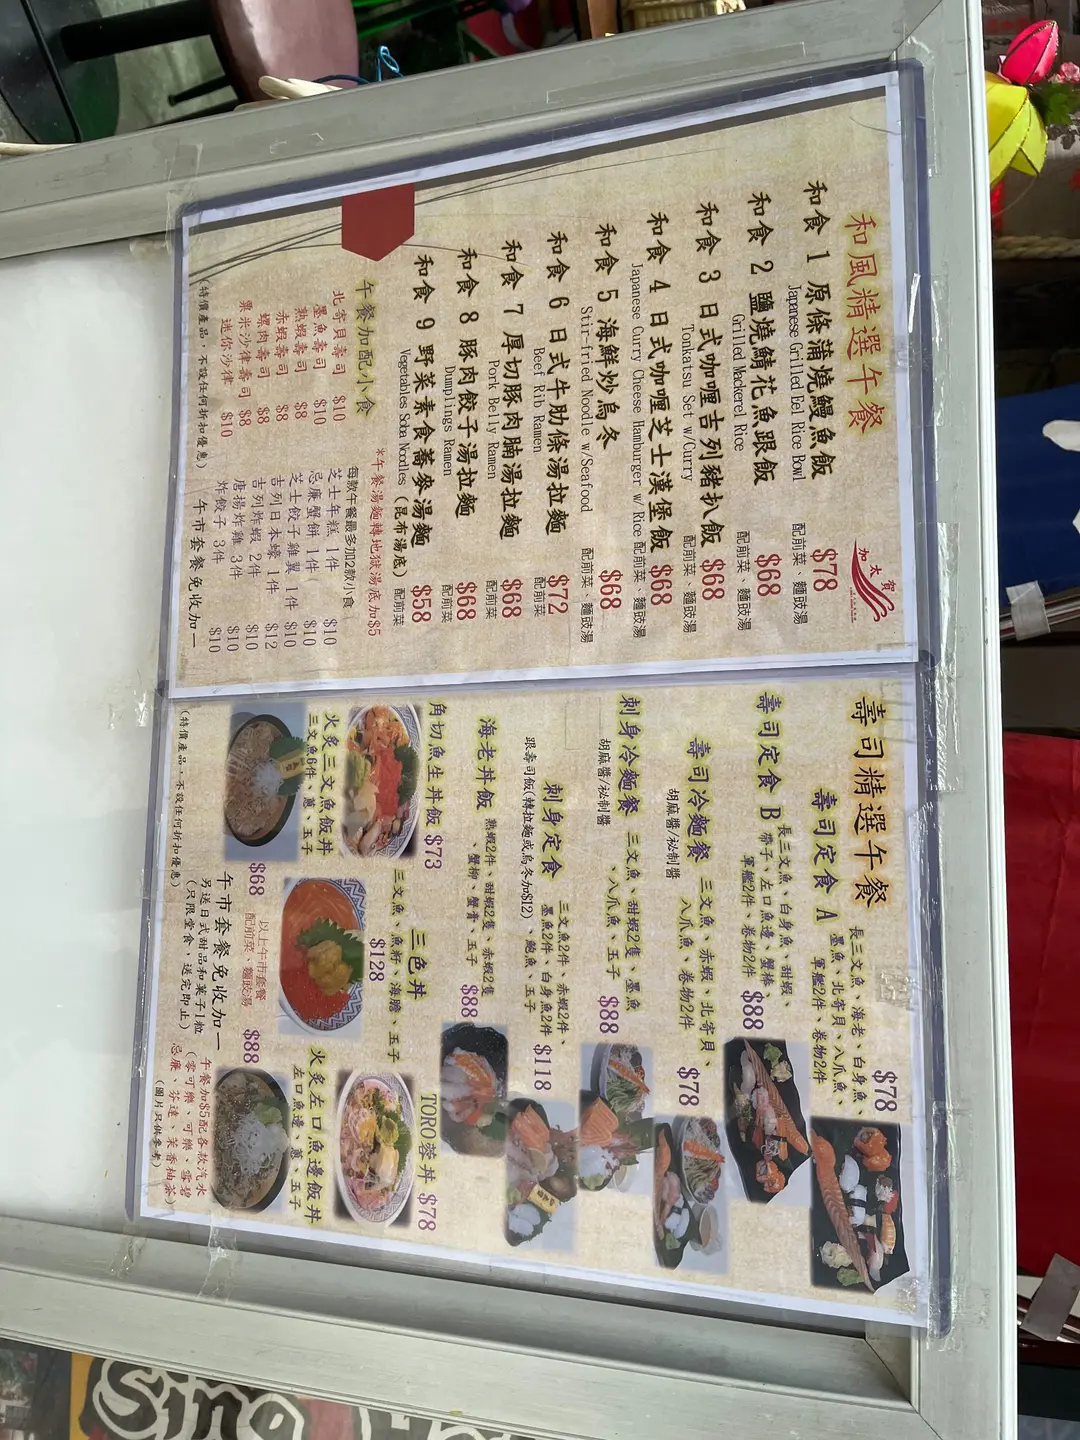 和風精選午餐
加太賀
和食 1 原條蒲燒鰻魚飯 $78
Japanese Grilled Eel Rice Bowl 配前菜、麵豉湯
和食 2 鹽燒鯖花魚跟飯 $68
Grilled Mackerel Rice 配前菜、麵豉湯
和食 3 日式咖喱吉列豬扒飯 $68
Tonkatsu Set w/Curry 配前菜、麵豉湯
和食 4 日式咖喱芝士漢堡飯 $68
Japanese Curry Cheese Hamburger w/ Rice 配前菜、麵豉湯
和食 5 海鮮炒烏冬 $68
Stir-fried Noodle w/Seafood 配前菜、麵豉湯
和食 6 日式牛肋條湯拉麵 $72
Beef Rib Ramen 配前菜
和食 7 厚切豚肉腩湯拉麵 $68
Pork Belly Ramen 配前菜
和食 8 豚肉餃子湯拉麵 $68
Dumplings Ramen 配前菜
和食 9 野菜素食蕎麥湯麵 $58
Vegetables Soba Noodles (昆布湯底) 配前菜
*午餐湯麵轉地獄湯底加$5
午餐加配小食
每款午餐最多加2款小食
北寄貝壽司 $10
墨魚壽司 $10
熟蝦壽司 $8
赤蝦壽司 $8
螺肉壽司 $8
粟米沙律壽司 $8
迷你沙律 $10
芝士年糕 1件 $10
忌廉蟹餅 1件 $10
芝士餃子雞翼 1件 $10
吉列日本蠔 1件 $12
吉列炸蝦 2件 $10
唐揚炸雞 3件 $10
炸餃子 3件 $10
(特價產品，不設任何折扣優惠)
午市套餐免收加一
壽司精選午餐
壽司定食 A $78
長三文魚、海老、白身魚、
墨魚、北寄貝、八爪魚、
軍艦2件、卷物2件
壽司定食 B $88
長三文魚、白身魚、甜蝦、
帶子、左口魚邊、蟹棒
軍艦2件、卷物2件
壽司冷麵餐 $78
胡麻醬/祕制醬
三文魚、赤蝦、北寄貝、
八爪魚、卷物2件
刺身冷麵餐 $88
胡麻醬/祕制醬
三文魚、甜蝦2隻、墨魚
、八爪魚、玉子
刺身定食 $118
三文魚2件、赤蝦2件、
墨魚2件、白身魚2件
、鮑魚、玉子
跟壽司飯(轉拉麵或烏冬加$12)
海老丼飯 $88
熟蝦2件、甜蝦2隻、赤蝦2隻
、蟹柳、蟹膏、玉子
角切魚生丼飯 $73
三色丼 $128
三文魚、魚籽、海膽、玉子
TORO蓉丼 $78
火炙三文魚飯丼 $68
三文魚6件、蔥、玉子
火炙左口魚邊飯丼 $88
左口魚邊、蔥、玉子
以上午市套餐
配前菜、麵豉湯
午市套餐免收加一
另送日式甜品和菓子1粒
(只限堂食，送完即止)
午餐加$5配各款汽水
(零可樂、可樂、雪碧
忌廉、芬達、茉香柚茶)
(圖片只供參考)
(特價產品，不設任何折扣優惠)
Sing